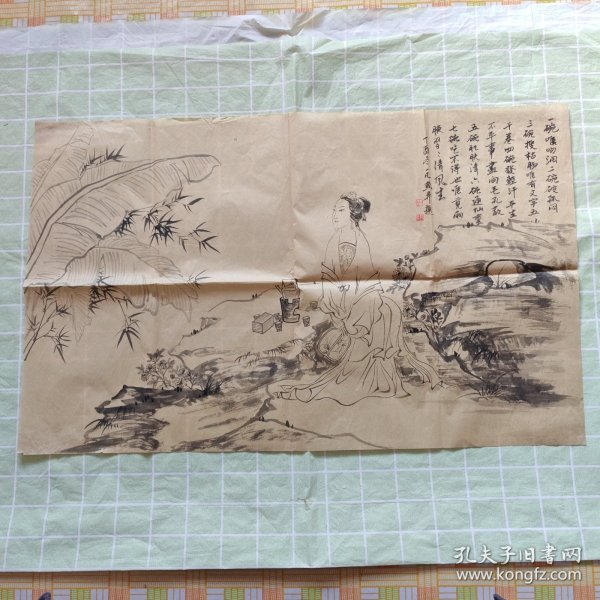 一碗喉吻润二碗破孤闷
三碗搜枯肠唯有文字五
千卷四碗发轻汗平生
不平事尽向毛孔散
五碗肌骨清六碗通仙灵
七碗吃不得也唯觉两
腋习习清风生
孔夫子旧书网
www.kongfz.com